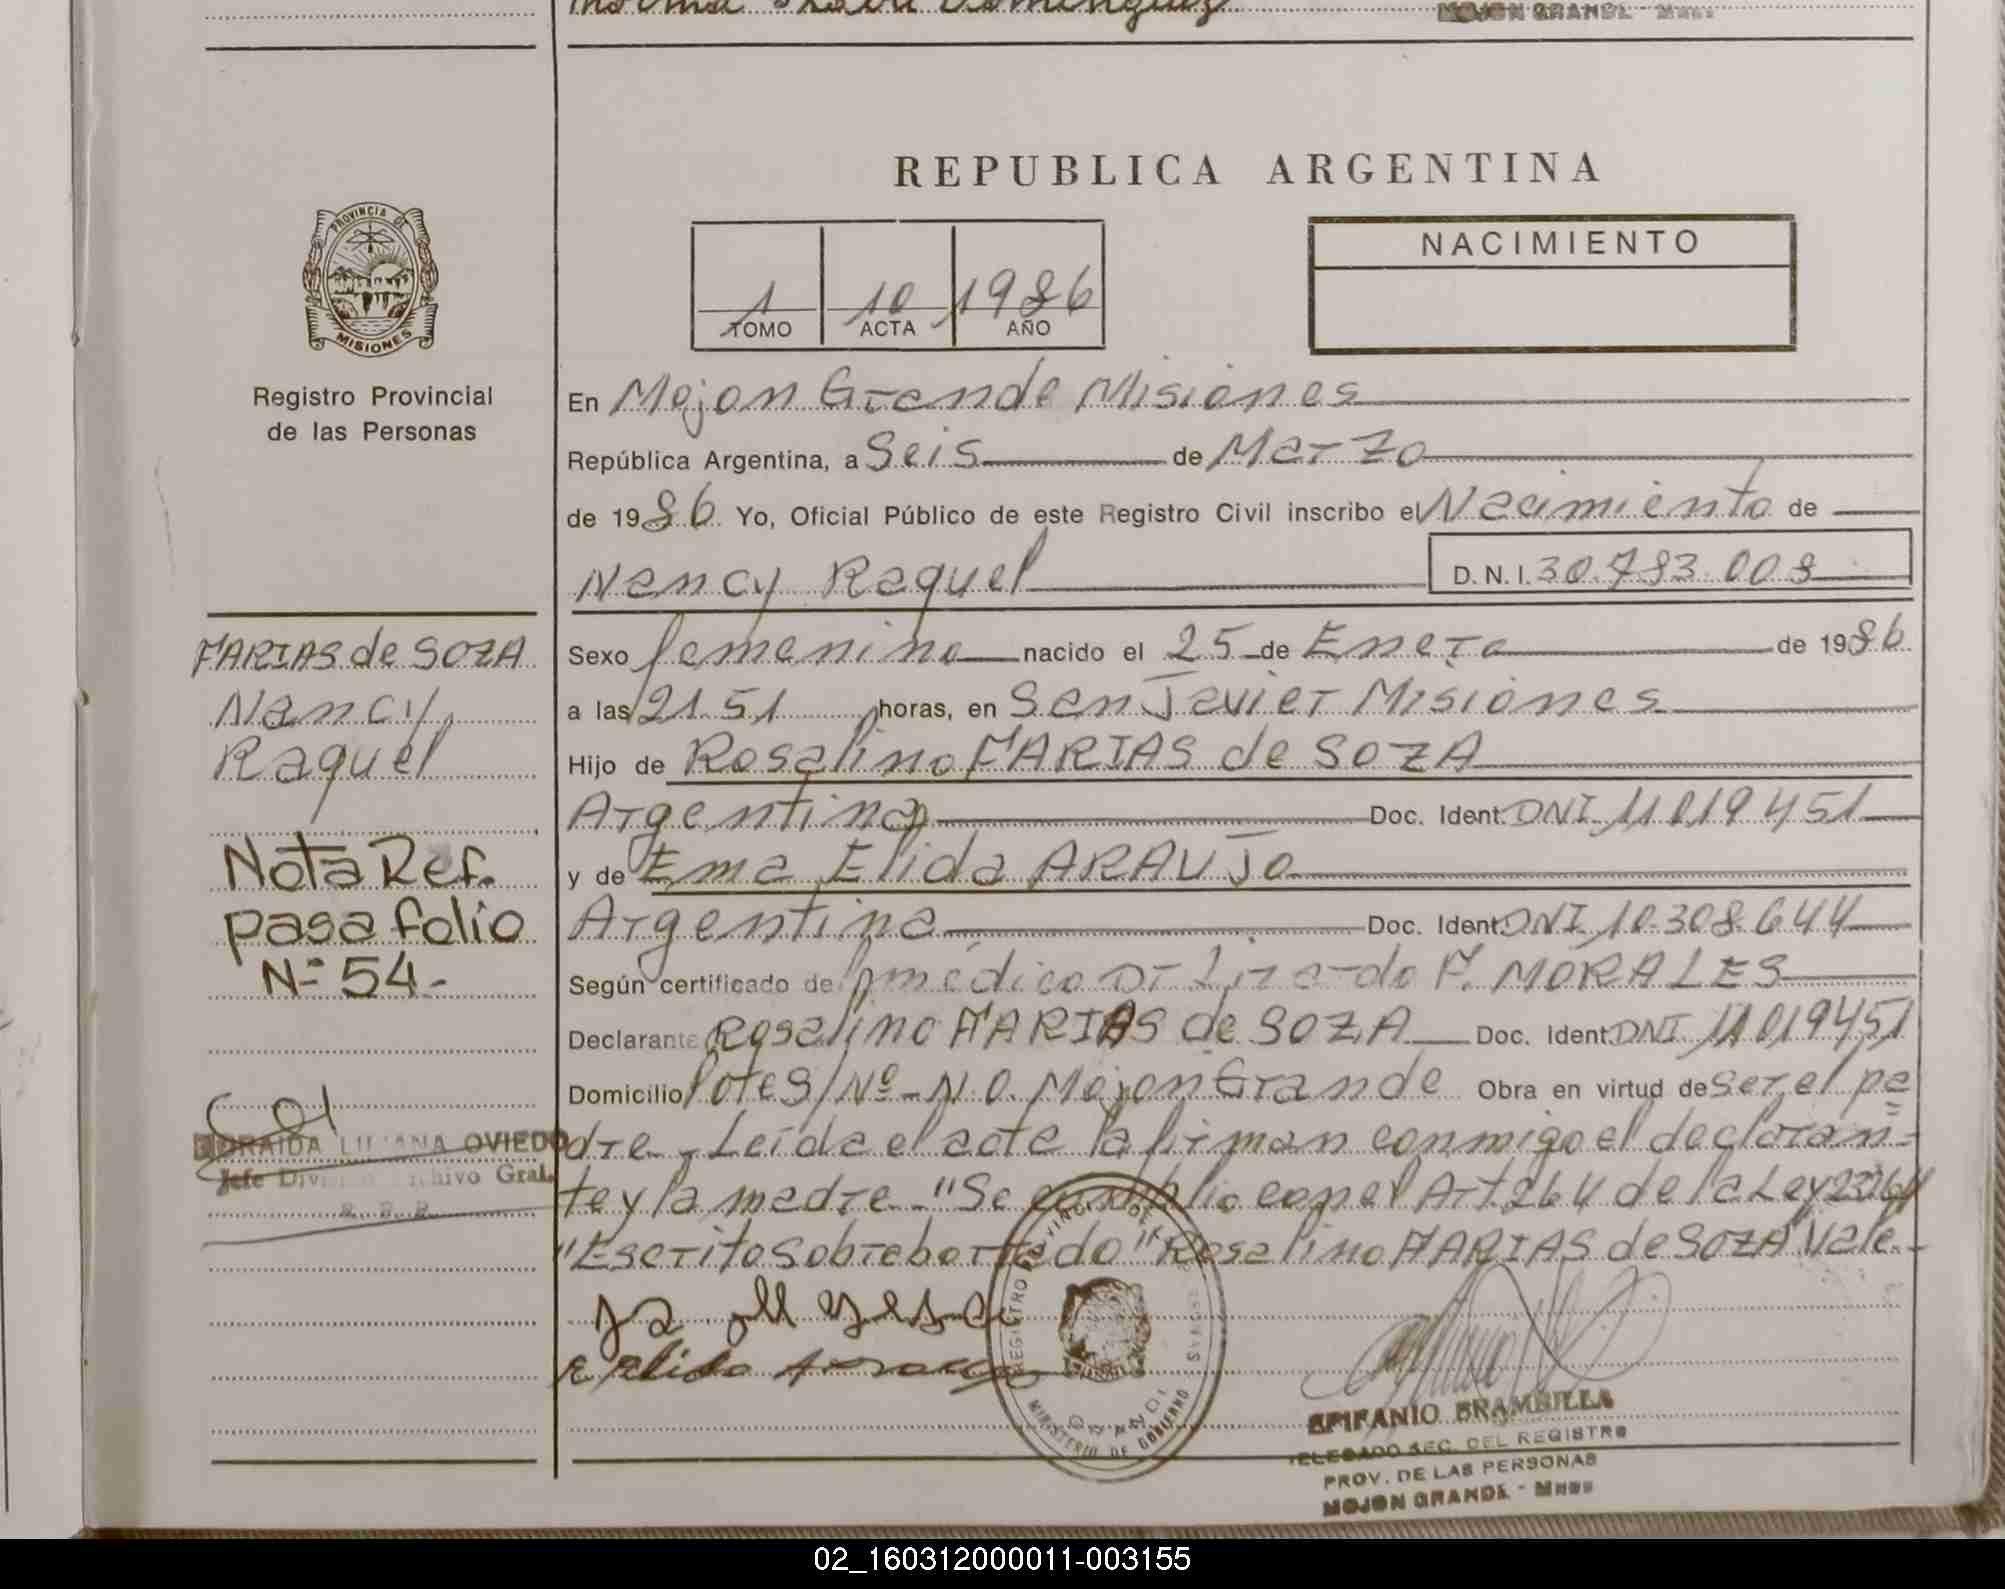 MOJON GRANDE - Mnes
REPUBLICA ARGENTINA
PROVINCIA DE
MISIONES
NACIMIENTO
1 10 1986
TOMO ACTA AÑO
Registro Provincial
de las Personas
En Mojon Grande Misiones
República Argentina, a Seis de Marzo
de 1986 Yo, Oficial Público de este Registro Civil inscribo el Nacimiento de
Nancy Raquel D.N.I. 30.783.008
FARIAS de SOZA
Nancy
Raquel
Nota Ref.
pasa folio
N= 54-
Sexo femenino nacido el 25 de Enero de 1986
a las 21.51 horas, en San Javier Misiones
Hijo de Rosalino FARIAS de SOZA
Argentina Doc. Ident. DNI 11019451
y de Ema Elida ARAUJo
Argentina Doc. Ident. DNI 10.308.644
Según certificado de médico Dr F. MORALES
Declarante Rosalino FARIAS de SOZA Doc. Ident. DNI 11019451
Domicilio lote S/Nº - N.O. Mojon Grande Obra en virtud de ser el pa=
dre. Leída el acta la firman conmigo el declaran=
te y la madre. "Se cumplio con el Art. 264 de la Ley
"Escrito sobreborrado" Rosalino FARIAS de SOZA" Vale.-
LILIANA OVIEDO
Jefe División Archivo Gral.
R. P. P.
REGISTRO PROVINCIAL DE LAS PERSONAS
MINISTERIO DE GOBIERNO
EPIFANIO BRAMBILLA
DELEGADO SEC. DEL REGISTRO
PROV. DE LAS PERSONAS
MOJON GRANDE - Mnes
02_160312000011-003155